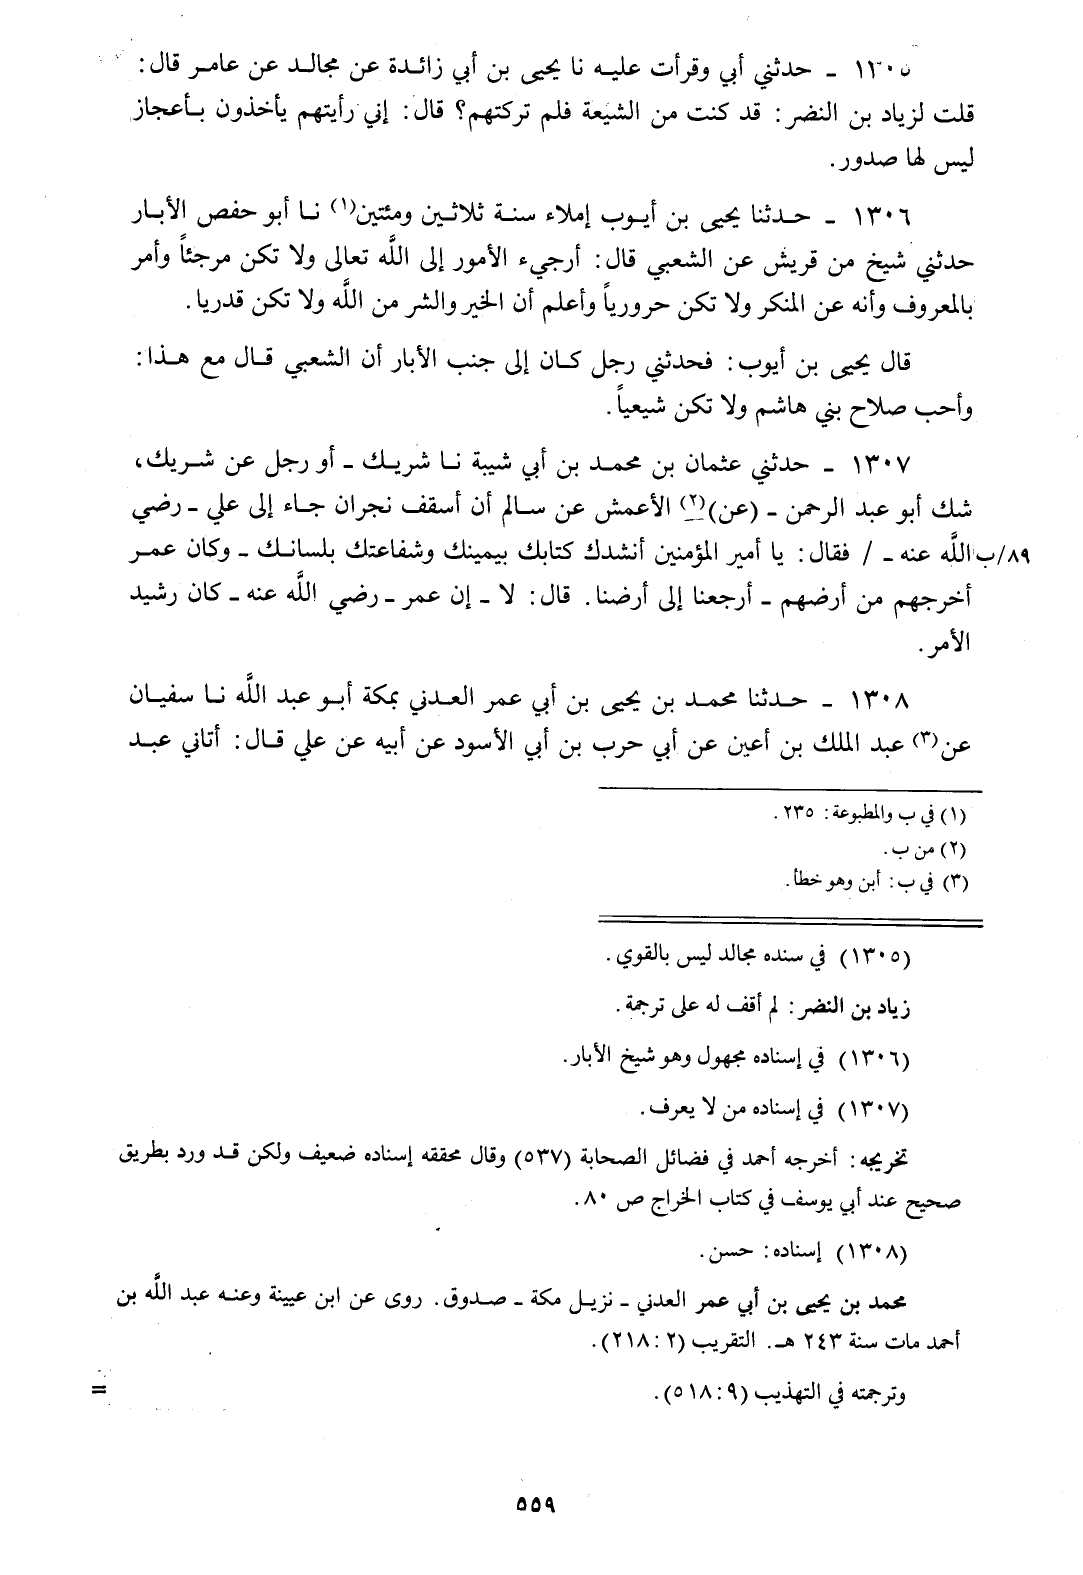 ١٣٠٥ ـ حدثني أبي وقرأت عليه نا يحيى بن أبي زائدة عن مجالد عن عامر قال:
قلت لزياد بن النضر: قد كنت من الشيعة فلم تركتهم؟ قال: إني رأيتهم يأخذون بأعجاز
ليس لها صدور.
١٣٠٦ ـ حدثنا يحيى بن أيوب إملاء سنة ثلاثين ومئتين(١) نا أبو حفص الأبار
حدثني شيخ من قريش عن الشعبي قال: أرجيء الأمور إلى الله تعالى ولا تكن مرجئاً وأمر
بالمعروف وأنه عن المنكر ولا تكن حرورياً وأعلم أن الخير والشر من الله ولا تكن قدريا.
قال يحيى بن أيوب: فحدثني رجل كان إلى جنب الأبار أن الشعبي قال مع هذا:
وأحب صلاح بني هاشم ولا تكن شيعياً.
١٣٠٧ ـ حدثني عثمان بن محمد بن أبي شيبة نا شريك ـ أو رجل عن شريك،
شك أبو عبد الرحمن ـ (عن)(٢) الأعمش عن سالم أن أسقف نجران جاء إلى علي ـ رضي
٨٩/ب الله عنه ـ / فقال: يا أمير المؤمنين أنشدك كتابك بيمينك وشفاعتك بلسانك ـ وكان عمر
أخرجهم من أرضهم ـ أرجعنا إلى أرضنا. قال: لا ـ إن عمر ـ رضي الله عنه ـ كان رشيد
الأمر.
١٣٠٨ ـ حدثنا محمد بن يحيى بن أبي عمر العدني بمكة أبو عبد الله نا سفيان
عن(٣) عبد الملك بن أعين عن أبي حرب بن أبي الأسود عن أبيه عن علي قال: أتاني عبد
(١) في ب والمطبوعة: ٢٣٥.
(٢) من ب.
(٣) في ب: أبن وهو خطأ.
(١٣٠٥) في سنده مجالد ليس بالقوي.
زياد بن النضر: لم أقف له على ترجمة.
(١٣٠٦) في إسناده مجهول وهو شيخ الأبار.
(١٣٠٧) في إسناده من لا يعرف.
تخريجه: أخرجه أحمد في فضائل الصحابة (٥٣٧) وقال محققه إسناده ضعيف ولكن قد ورد بطريق
صحيح عند أبي يوسف في كتاب الخراج ص ٨٠.
(١٣٠٨) إسناده: حسن.
محمد بن يحيى بن أبي عمر العدني ـ نزيل مكة ـ صدوق. روى عن ابن عيينة وعنه عبد الله بن
أحمد مات سنة ٢٤٣ هـ. التقريب (٢: ٢١٨).
وترجمته في التهذيب (٩: ٥١٨).
=
٥٥٩